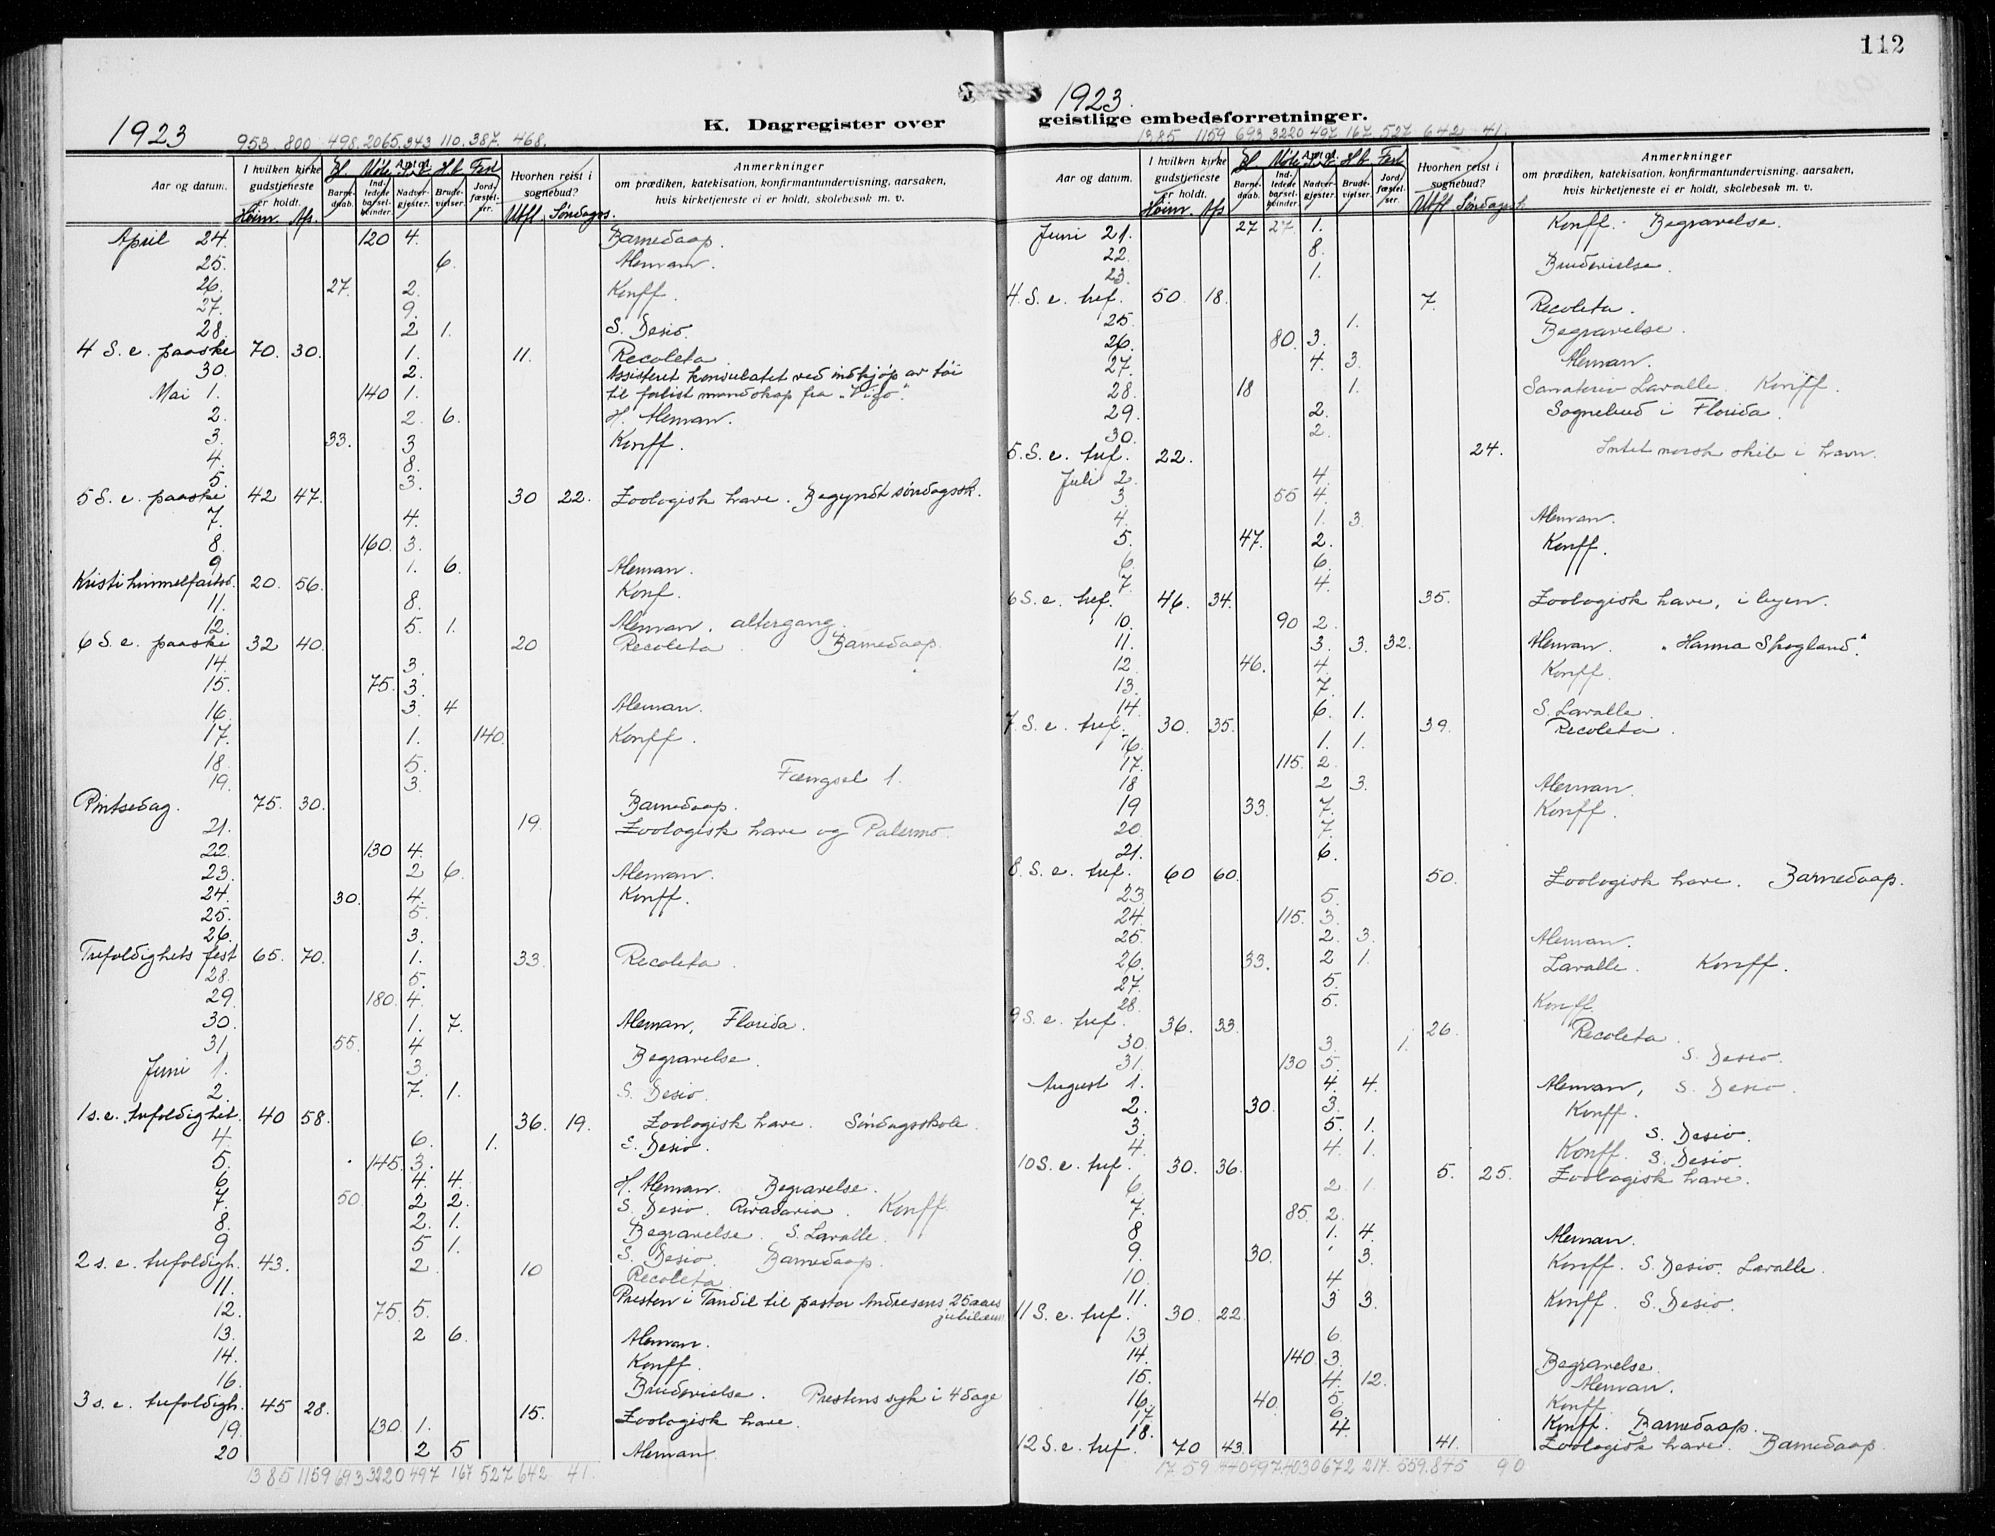 112
1923
1923.
K. Dagregister over geistlige embedsforretninger.
953. 800 498. 2065. 343 110. 387. 468.
Aar og datum.
I hvilken kirke gudstjeneste er holdt.
Høim. Afs.
Bl. Møte
Barnedaab.
Indledede barselkvinder.
Antal
Nadvergjester.
H.b. Fest
Brudevielser.
Jordfæstelser.
Hvorhen reist i sognebud?
Utfl. Søndags.
Anmerkninger
om prædiken, katekisation, konfirmantundervisning, aarsaken, hvis kirketjeneste ei er holdt, skolebesøk m. v.
April 24. 120 4. Barnedaap.
25. 6. Aleman.
26. 27. 2. Konff.
27. 9.
28. 2 1. S. Desio
4 S. e. paaske 70. 30. 1. 11. Recoleta
30. 2. Assisteret konsulatet ved indkjøp av tøi
Mai 1. 140 1. til forlist mandskap fra "Vigo".
2. 2. 6. H. Aleman.
3. 33. 3 Konff.
4. 8.
5. 3.
5 S. e. paaske 42 47. 30 22. Zoologisk have. Begyndt søndagssk.
7. 4.
8. 160. 3.
9 1. 6. Aleman.
Kristi himmelfartsd. 20. 56. Konf.
11. 8.
12. 5. 1. Aleman. altergang.
6 S. e. paaske 32 40. 20 Recoleta. Barnedaap.
14. 3.
15. 75. 3.
16. 3. 4 Aleman.
17. 1. 140. Konff.
18. 5.
19. 3. Fængsel 1.
Pintsedag. 75. 30. Barnedaap.
21. 19. Zoologisk have og Palermo.
22. 130 4.
23. 2 6. Aleman.
24. 30. 4. Konff.
25. 5.
26. 3.
Trefoldighets fest 65. 70. 1. 33. Recoleta.
28. 5.
29. 180. 4.
30. 1. 7. Aleman, Florida.
31 55. 4
Juni 1. 3. Begravelse.
2. 7. 1. S. Desio.
1 s. e. trefoldighet. 40 58. 36. 19. Zoologisk have. Søndagsskole.
4. 6. 1. S. Desio.
5. 145. 3.
6 4. 4. H. Aleman. Begravelse.
7. 50. 2 2. S. Desio. Rivadavia. Konff.
8. 2. 1. Begravelse. S. Lavalle.
9 5 1. S. Desio. Barnedaap.
2 s. e. trefoldigh. 43. 2. 10 Recoleta.
11. Presten i Tandil til pastor Andresens 25 aars jubilæum
12. 75. 5.
13. 2 6. Aleman.
14. Konff.
16. Brudevielse. Prestens syk i 4 dage
3 s. e. trefoldigh. 45 28. 15. Zoologisk have.
19. 130 1.
20 2 5 Aleman
1385 1159 693 3220 497 167 527 642 41.
1385 1159 693 3220 497 167 527 642 41.
Aar og datum.
I hvilken kirke gudstjeneste er holdt.
Høim. Afs
Bl. Møte
Barnedaab.
Indledede barselkvinder.
Antal
Nadvergjester.
H.b. Fest
Brudevielser.
Jordfæstelser.
Hvorhen reist i sognebud?
Utfl Søndagssk
Anmerkninger
om prædiken, katekisation, konfirmantundervisning, aarsaken, hvis kirketjeneste ei er holdt, skolebesøk m. v.
Juni 21. 27 27. 1. Konff. Begravelse.
22. 8.
23. 1. Brudevielse.
4. S. e. tref. 50. 18. 7. Recoleta.
25. 1. Begravelse.
26. 80. 3.
27. 4. 3. Aleman.
28. 18 1. Sanatorio Lavalle. Konff.
29. 2. Sognebud i Florida.
30. 2.
5. S. e. tref. 22. 24. Intet norsk skib i havn.
Juli 2. 4.
3. 55 4.
4. 1. 3. Aleman.
5. 47. 2. Konff.
6. 6.
7 4.
6 S. e. tref. 46. 34. 35. Zoologisk have, i byen.
10. 90 2.
11. 3. 3. 32. Aleman. "Hanna Skogland".
12. 46. 4. Konff.
13. 7.
14. 6. 1. S. Lavalle.
7 S. e. tref. 30. 35. 39. Recoleta.
16. 1. 1.
17. 115. 2.
18 2 3. Aleman.
19 33. 7. Konff.
20. 7.
21. 6.
8. S. e. tref. 60 60. 50. Zoologisk have. Barnedaap.
23. 5.
24. 115. 3.
25. 2. 3. Aleman.
26. 33. 2 1. Lavalle. Konff.
27. 5.
28. 5. Konff.
9 S. e. tref. 36. 33. 26. Recoleta
30. 3. 1. S. Desio.
31. 130 5.
August 1. 4. 4. Aleman, S. Desio.
2. 30. 3. Konff.
3. 5. 1. S. Desio.
4. 4. 1. Konff. S. Desio.
10 S. e. tref. 30. 36. 5. 25. Zoologisk have.
6. 2. 1.
7. 85. 2.
8 1. 4. Aleman.
9. 30. 3. Konff. S. Desio. Lavalle.
10. 4
11. 3 3. Konff. S. Desio.
11 S. e. tref. 30 22.
13 6.
14. 140 3. Begravelse.
15. 4. 12. Aleman.
16. 40. 5. Konff.
17. 6.
18. 4. Konff. Barnedaap.
12 S. e. tref. 70 43. 41. Zoologisk have. Barnedaap
1759. 1440 997 4030 672 217. 559. 845 90